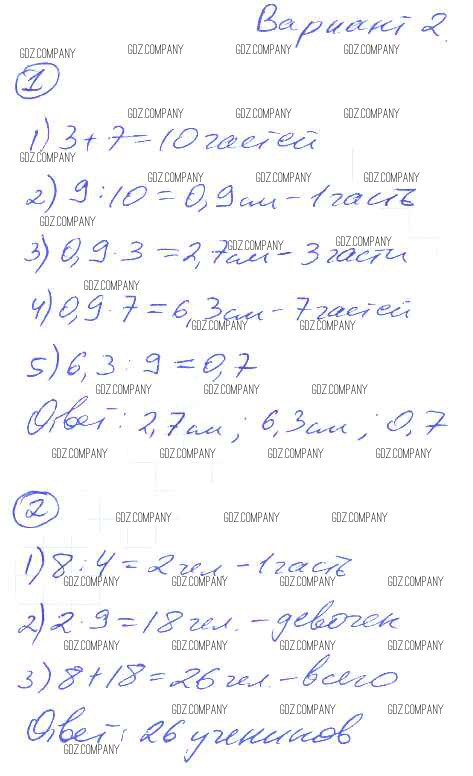 Вариант 2
GDZ.COMPANY GDZ.COMPANY GDZ.COMPANY GDZ.COMPANY
1
GDZ.COMPANY GDZ.COMPANY GDZ.COMPANY
1) 3 + 7 = 10 частей
GDZ.COMPANY
GDZ.COMPANY GDZ.COMPANY GDZ.COMPANY
2) 9 : 10 = 0,9 см - 1 часть
GDZ.COMPANY
3) 0,9 · 3 = 2,7 см - 3 части
GDZ.COMPANY GDZ.COMPANY
GDZ.COMPANY
4) 0,9 · 7 = 6,3 см - 7 частей
GDZ.COMPANY GDZ.COMPANY
5) 6,3 : 9 = 0,7
GDZ.COMPANY GDZ.COMPANY GDZ.COMPANY
Ответ: 2,7 см; 6,3 см; 0,7
GDZ.COMPANY GDZ.COMPANY GDZ.COMPANY GDZ.COMPANY
2
GDZ.COMPANY GDZ.COMPANY GDZ.COMPANY
1) 8 : 4 = 2 чел - 1 часть
GDZ.COMPANY GDZ.COMPANY GDZ.COMPANY GDZ.COMPANY
2) 2 · 9 = 18 чел. - девочек
GDZ.COMPANY GDZ.COMPANY GDZ.COMPANY GDZ.COMPANY
3) 8 + 18 = 26 чел. - всего
GDZ.COMPANY GDZ.COMPANY GDZ.COMPANY GDZ.COMPANY
Ответ: 26 учеников
GDZ.COMPANY